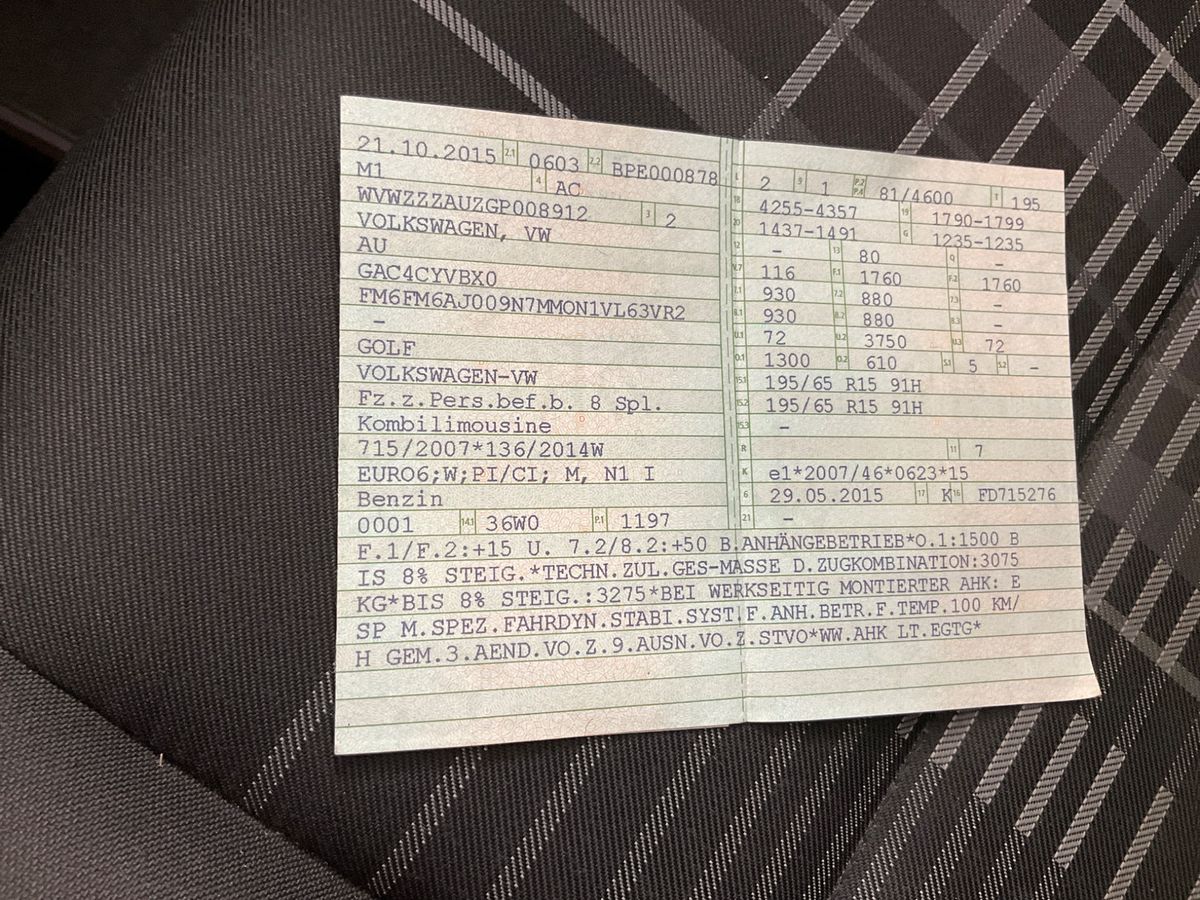 21.10.2015 2.1 0603 2.2 BPE000878
M1 4 AC
WVWZZZAUZGP008912 3 2
VOLKSWAGEN, VW
AU
GAC4CYVBX0
FM6FM6AJ009N7MMON1VL63VR2
–
GOLF
VOLKSWAGEN-VW
Fz.z.Pers.bef.b. 8 Spl.
Kombilimousine
715/2007*136/2014W
EURO6;W;PI/CI; M, N1 I
Benzin
0001 14.1 36W0 P.1 1197
L 2 9 1 P.2 P.4 81/4600 T 195
18 4255-4357 19 1790-1799
20 1437-1491 G 1235-1235
12 – 13 80 Q –
V.7 116 F.1 1760 F.2 1760
7.1 930 7.2 880 7.3 –
8.1 930 8.2 880 8.3 –
U.1 72 U.2 3750 U.3 72
O.1 1300 O.2 610 S.1 5 S.2 –
15.1 195/65 R15 91H
15.2 195/65 R15 91H
15.3 –
R 11 7
K e1*2007/46*0623*15
6 29.05.2015 17 K 16 FD715276
21 –
F.1/F.2:+15 U. 7.2/8.2:+50 B.ANHÄNGEBETRIEB*O.1:1500 B
IS 8% STEIG.*TECHN.ZUL.GES-MASSE D.ZUGKOMBINATION:3075
KG*BIS 8% STEIG.:3275*BEI WERKSEITIG MONTIERTER AHK: E
SP M.SPEZ.FAHRDYN.STABI.SYST.F.ANH.BETR.F.TEMP.100 KM/
H GEM.3.AEND.VO.Z.9.AUSN.VO.Z.STVO*WW.AHK LT.EGTG*